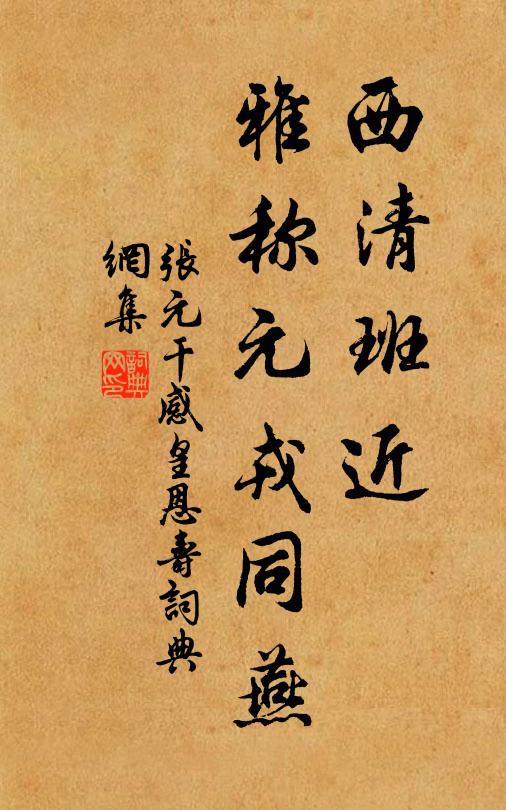 西清班近
雅称元戎同燕
張元干感皇恩壽詞典
網集
詞典網印